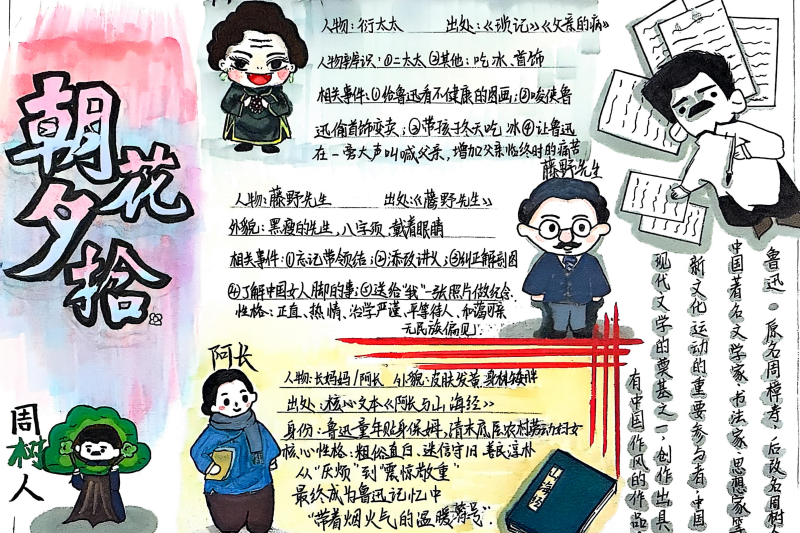 朝花夕拾
人物:衍太太 出处:《琐记》《父亲的病》
人物辨识:①二太太②其他:吃冰、首饰
相关事件:①给鲁迅看不健康的图画;②唆使鲁
迅偷首饰变卖;③带孩子冬天吃冰④让鲁迅
在一旁大声叫喊父亲,增加父亲临终时的痛苦
藤野先生
人物:藤野先生 出处:《藤野先生》
外貌:黑瘦的先生,八字须,戴着眼睛
相关事件:①忘记带领结;②添改讲义;③纠正解剖图
④了解中国女人脚的事;⑤送给“我”一张照片做纪念.
性格:正直、热情、治学严谨、平等待人、
无民族偏见.
阿长
人物:长妈妈/阿长 外貌:皮肤发黄,身材矮胖
出处:核心文本《阿长与山海经》
身份:鲁迅童年贴身保姆,清末底层农村劳动妇女
核心性格:粗俗直白、迷信守旧、善良淳朴
从“厌烦”到“震惊敬重”
最终成为鲁迅记忆中
“带着烟火气的温暖符号”.
山海经
周树人
鲁迅,原名周樟寿,后改名周树
中国著名文学家、书法家、思想家
新文化运动的重要参与者,中国
现代文学的奠基之一,创作出具
有中国作风的作品